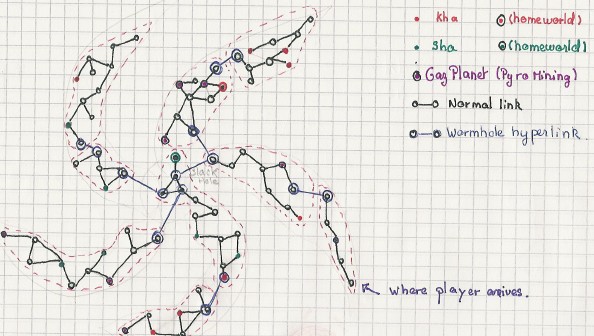 kha
(homeworld)
sha
(homeworld)
Gaz Planet (Pyro Mining)
Normal link
Wormhole hyperlink.
black
hole
where player arrives.